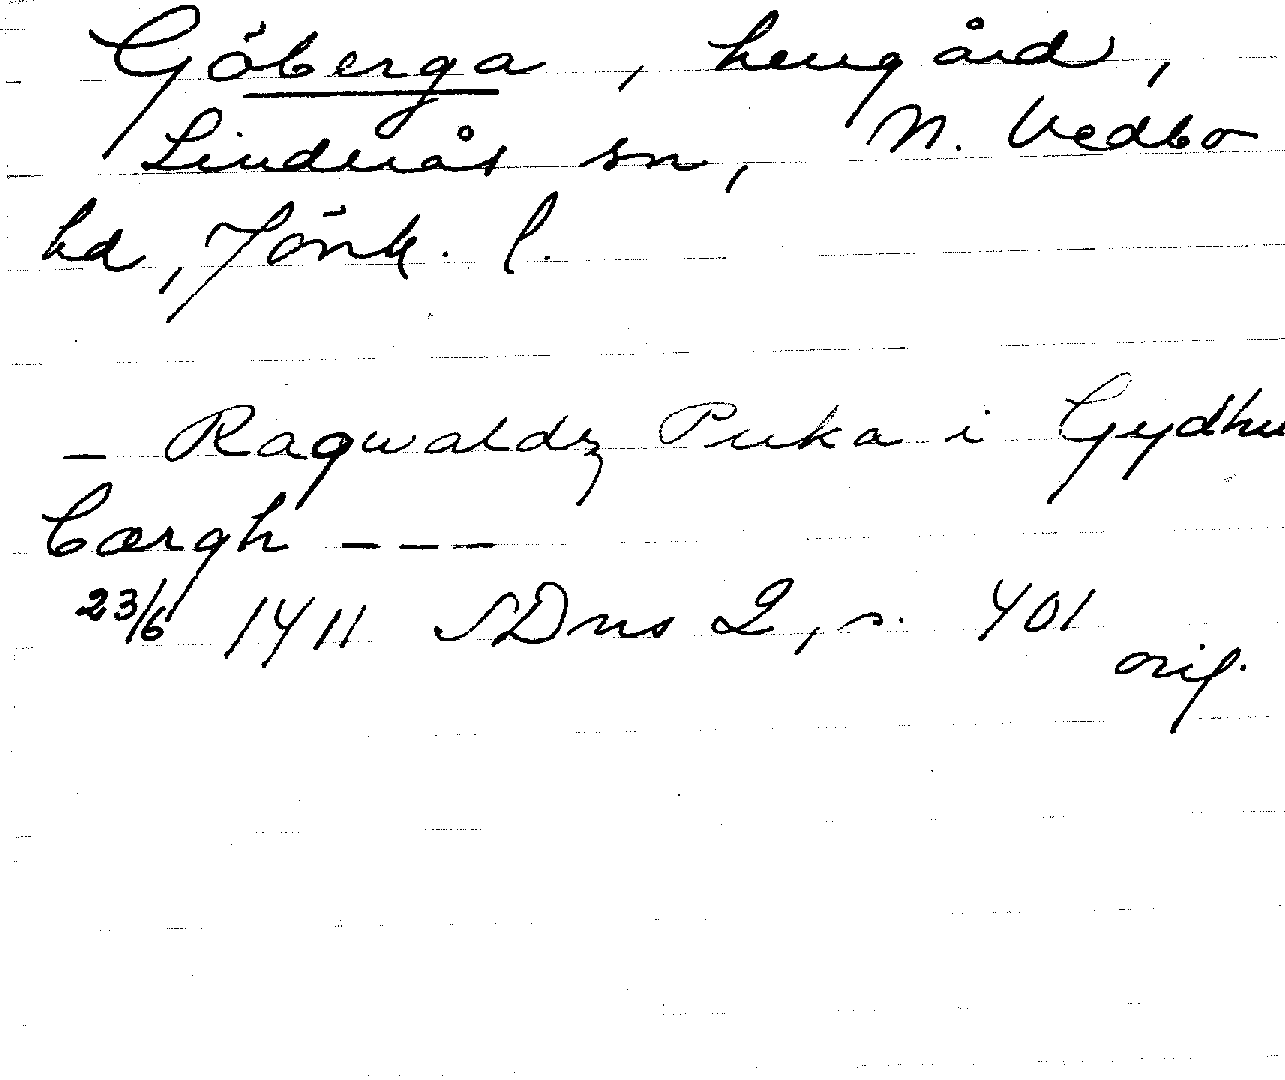 Göberga, herrgård,
Linderås sn, N. Vedbo
hd, Jönk. l.
- Ragwaldz Puka i Gydhu
bærgh ---
23/6 1411 SDns 2, s. 401
orig.